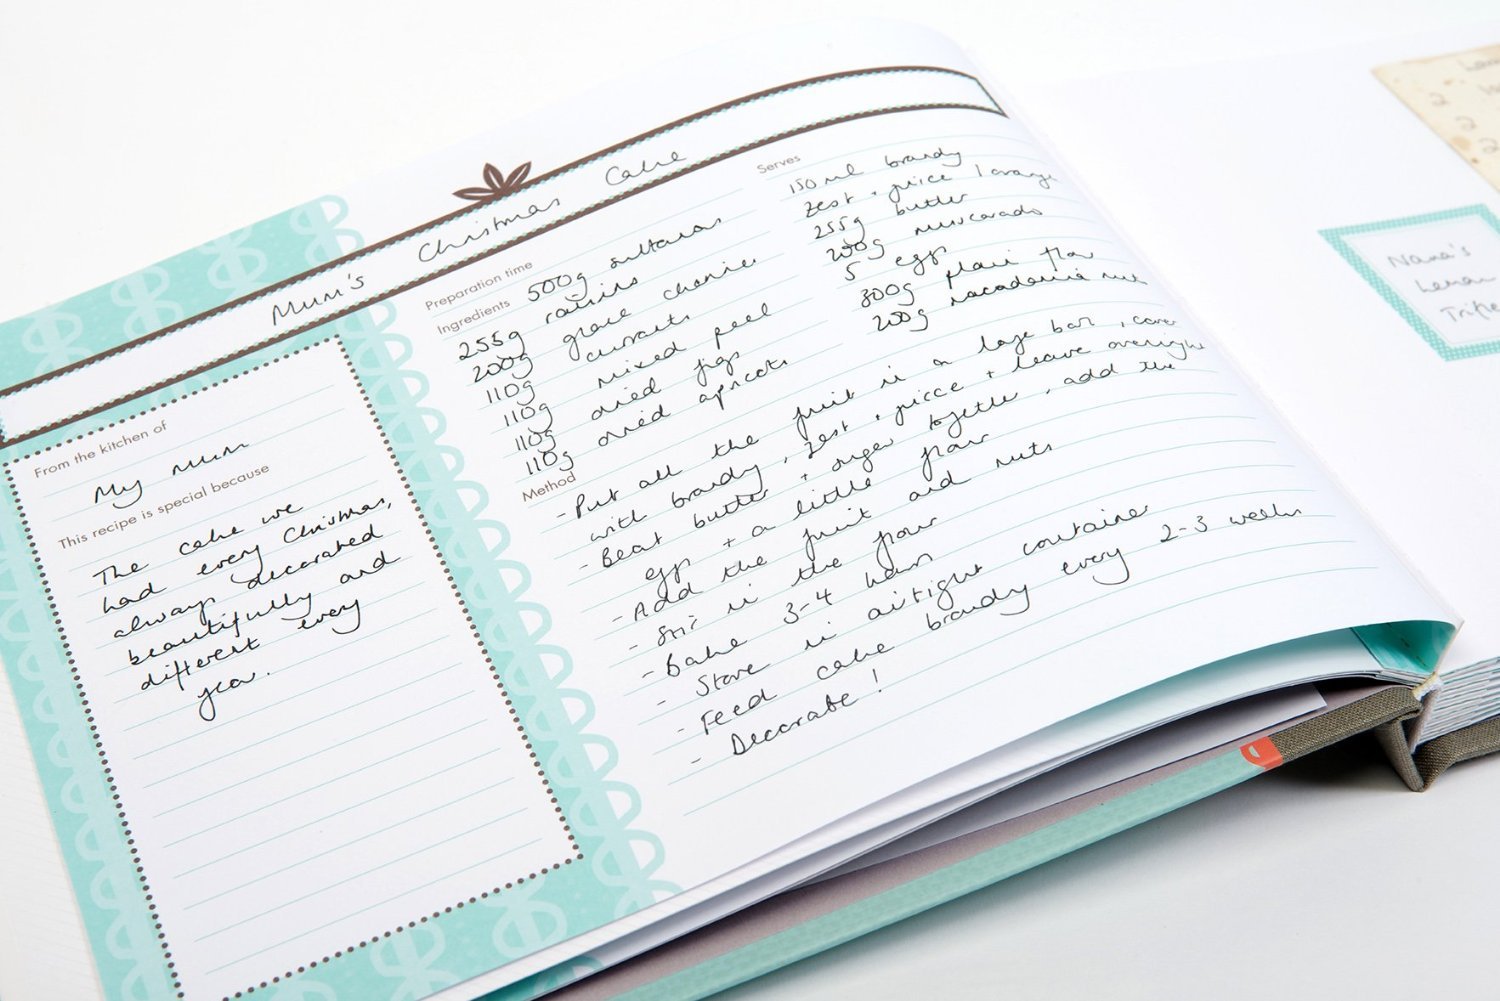 Mum's Christmas Cake
From the kitchen of
My mum
This recipe is special because
The cake we
had every Christmas,
always decorated
beautifully and
different every
year.
Preparation time
Ingredients 500g sultanas
255g raisins
200g glace cherries
110g currants
110g mixed peel
110g dried figs
110g dried apricots
Serves
150ml brandy
zest + juice 1 orange
255g butter
200g muscavado
5 eggs
300g plain flour
200g macadamia nuts
Method
- Put all the fruit in a large bowl, cover
with brandy, zest + juice + leave overnight
- Beat butter + sugar together, add the
eggs + a little flour
- Add the fruit and nuts
- Stir in the flour
- Bake 3-4 hours
- Store in airtight container
- Feed cake brandy every 2-3 weeks
- Decorate!
2
2
2
Nana's
Lemon
Trifle